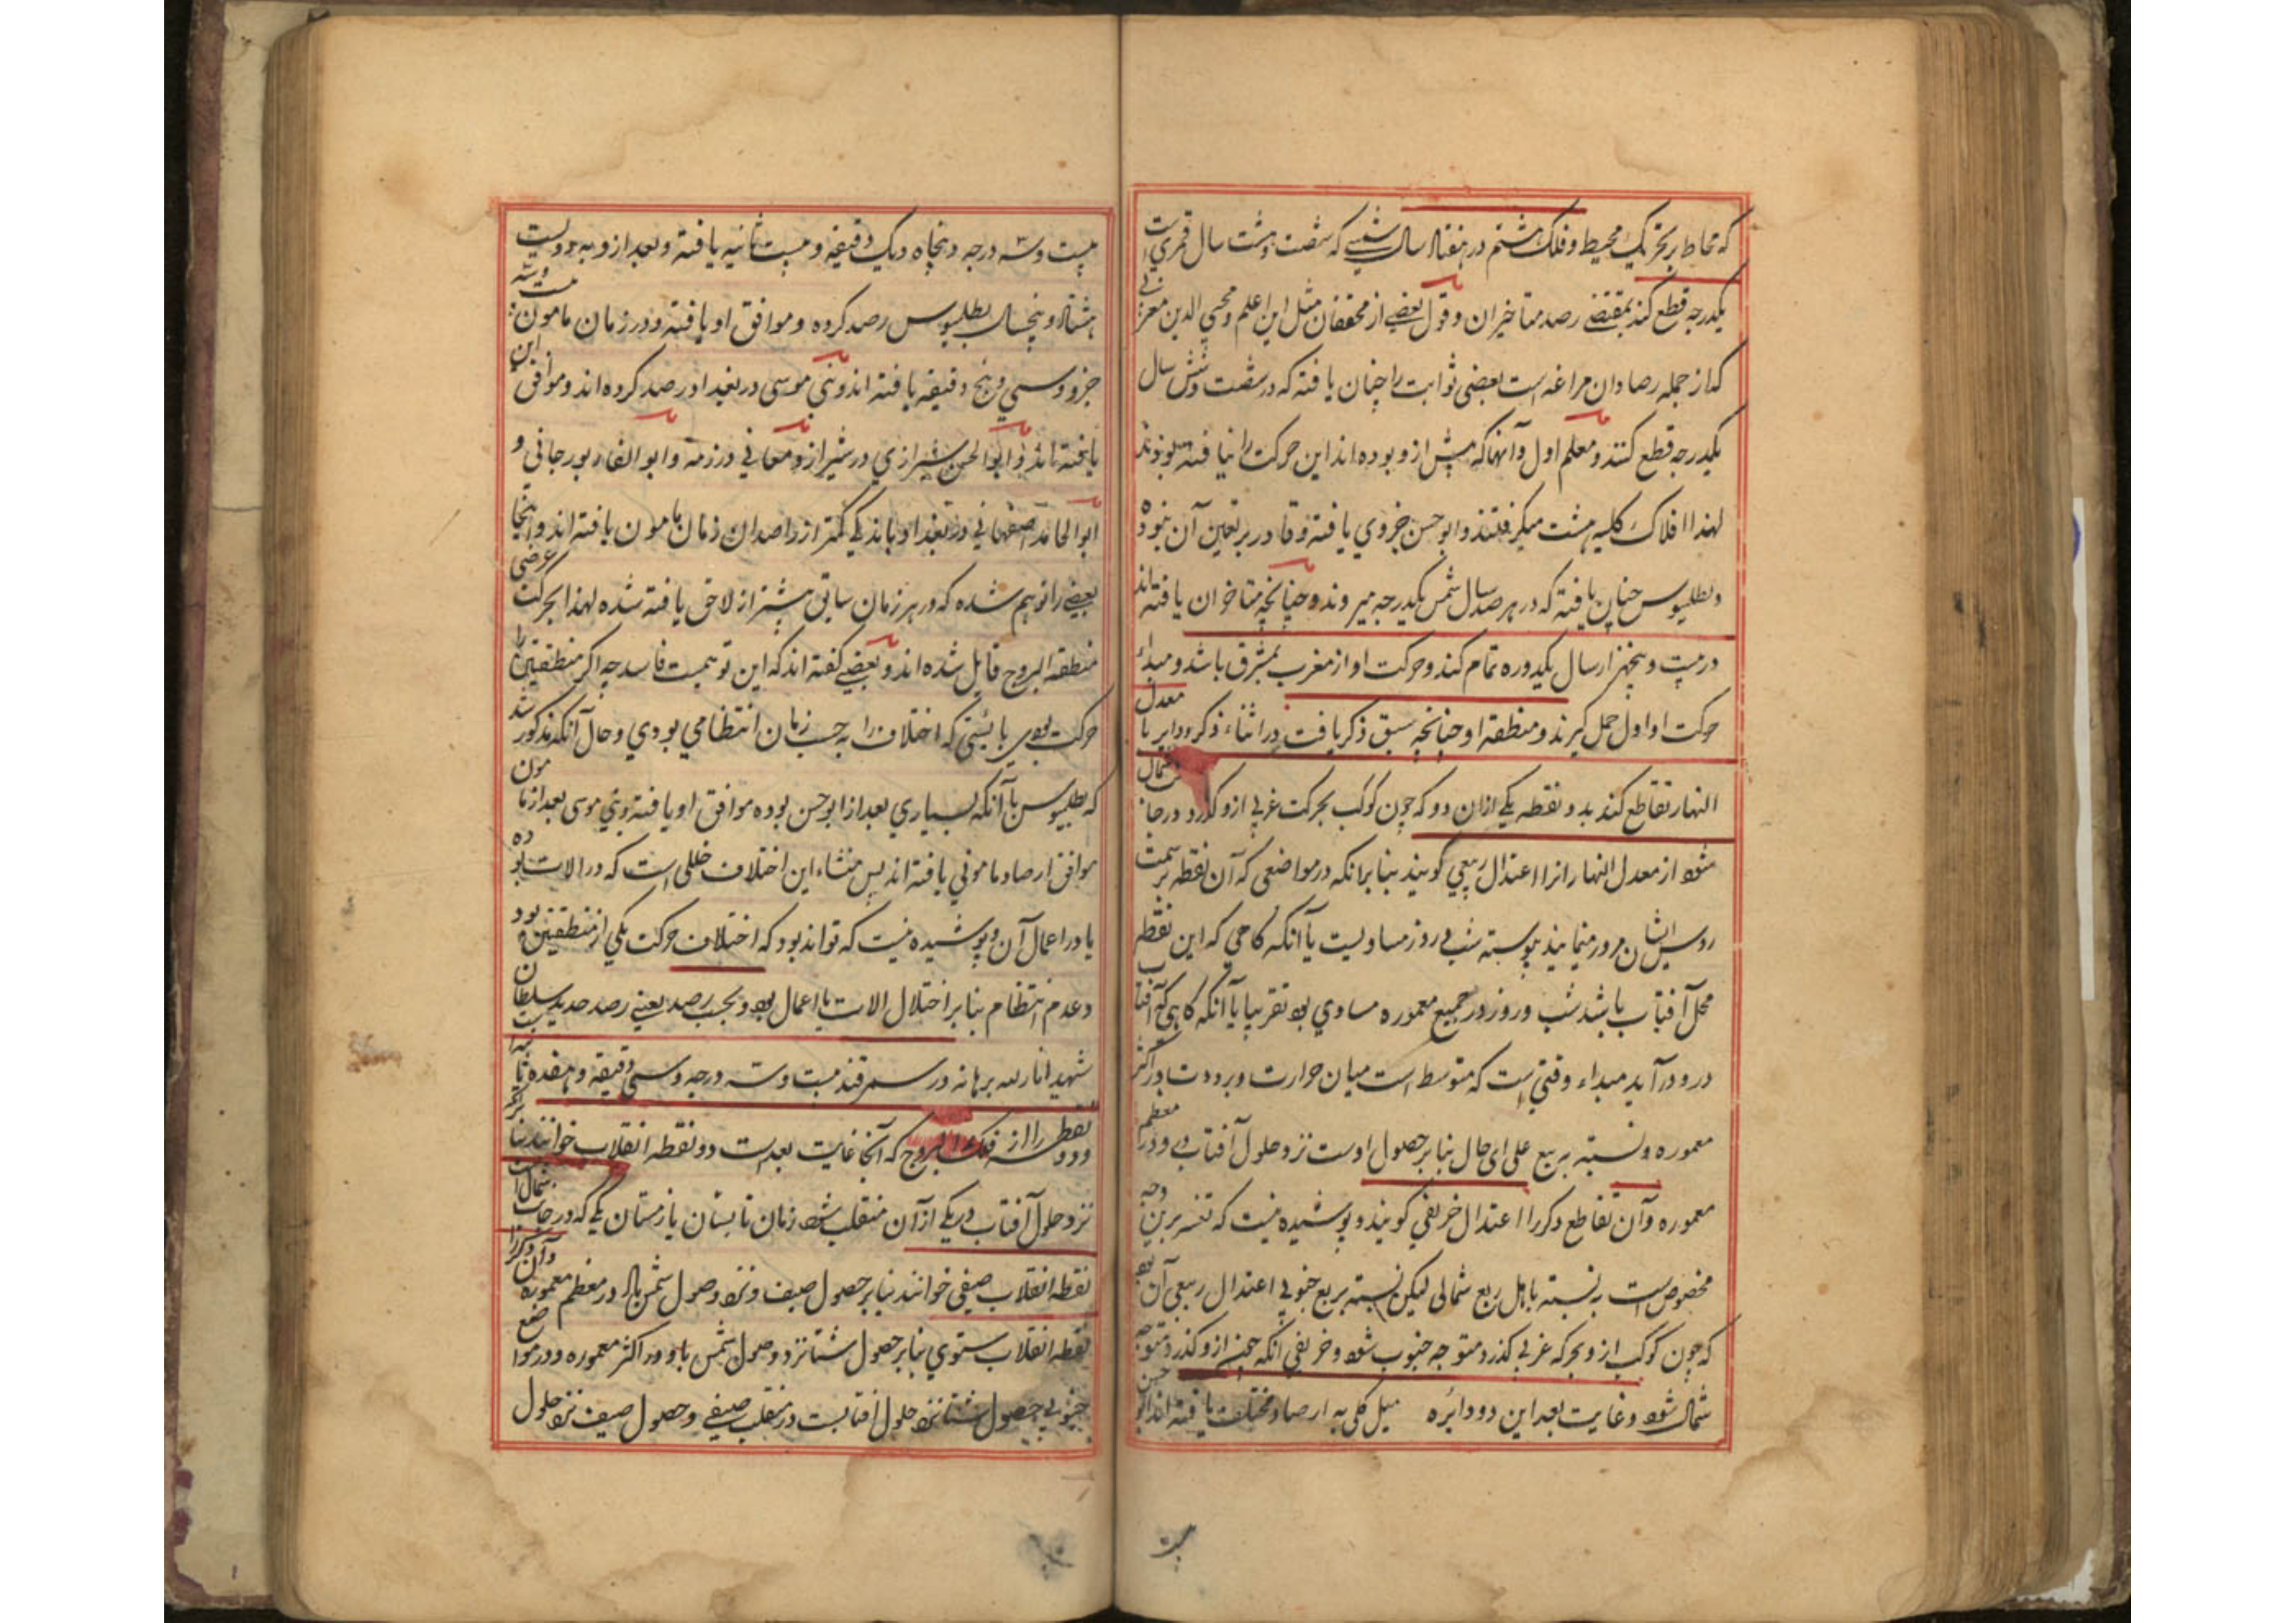 که محاط بتحریک محیط و فلک هشتم در هفتاد سال شمسی که شصت و هشت سال قمری است
یکدرجه قطع کند بمقتضی رصد متاخران و قول بعضی از محققان مثل ابن اعلم و محیی الدین مغربی
که از جمله رصادان مراغه است بعضی ثوابت را چنان یافته که در شصت و شش سال
یکدرجه قطع کنند و معلم اول و آنها که پیش از و بوده اند این حرکت را نیافته بودند
لهذا افلاک کلیه هشت میگرفتند و ابو حسن جزوی یافته و قادر بر تعین آن نبوده
و بطلمیوس چنان یافته که در هر صد سال شمس یکدرجه میروند و چنانچه متاخران یافته اند
در بیست و پنجهزار سال یکدوره تمام کند و حرکت او از مغرب بمشرق باشد و مبداء
حرکت او اول حمل گیرند و منطقه او چنانچه سبق ذکر یافت در اثناء ذکر دوایر با معدل
النهار تقاطع کند بدو نقطه یکی ازان دو که چون کوکب بحرکت غربی ازو گذرد در جانب شمال
شود از معدل النهار انرا اعتدال ربیعی گویند بنابر انکه در مواضعی که آن نقطه بر سمت
روس ایشان مرور مینمایند پیوسته شب و روز مساویست یا آنکه گاهی که این نقطه
محل آفتاب باشد شب و روز در جمیع معموره مساوی بود تقریبا یا آنکه گاهی که آفتاب
درو درآید مبداء وقتی است که متوسط است میان حرارت و برودت در اکثر
معموره و نسبته بربیع علی ای حال بنابر حصول اوست نزد حلول آفتاب در و در معظم
معموره و آن تقاطع دیگر را اعتدال خریفی گویند و پوشیده نیست که تفسیر برین وجه
مخصوص است به نسبته باهل ربع شمالی لیکن نسبته بربع جنوبی اعتدال ربیعی آن بود
که چون کوکب ازو بحرکه غربی گذرد متوجه جنوب شود و خریفی انکه چون ازو گذرد متوجه
شمال شود و غایت بعد این دو دائره میل کلی به ارصاد مختلف یافته اند ابو حسن
بیست و سه درجه و پنجاه و یک دقیقه و بیست ثانیه یافته و بعد ازو به دویست
هشتاد و پنجسال بطلمیوس رصد کرده و موافق او یافته و در زمان مامون بیست و سه
جزو و سی و پنج دقیقه یافته اند و بنی موسی در بغداد رصد کرده اند و موافق این
یافته اند و ابو الحسن شیرازی در شیراز و در و ابو الفا بورجانی و
ابو الحامد اصفهانی در بغداد باندکی کمتر از راصدان زمان مامون یافته اند و اینجا
بعضی را توهم شده که در هر زمان سابق بیشتر از لاحق یافته شده لهذا بحرکت عرضی
منطقه البروج قایل شده اند و بعضی گفته اند که این توهمیست فاسد چه اگر منطقتین را
حرکت بودی بایستی که اختلاف را به حسب زمان انتظامی بودی و حال آنکه مذکور شد
که بطلمیوس با آنکه بسیاری بعد از ابو حسن بوده موافق او یافته و بنی موسی بعد از مامون
موافق ارصاد مامونی یافته اند پس منشاء این اختلاف خللی است که در الات بوده
یا در اعمال آن و پوشیده نیست که تواند بود که اختلاف حرکت یکی از منطقتین بود
و عدم انتظام بنابر اختلال الات یا اعمال بود و بحسب رصد یعنی رصد جدید سلطان
شهید انار الله برهانه در سمرقند بیست و سه درجه و سی دقیقه و هفده ثانیه است
و دو نقطه را از فلک البروج که آنجا غایت بعد است دو نقطه انقلاب خوانند بنابر آنکه
نزد حلول آفتاب در یکی از آن منقلب شود زمان تابستان یا زمستان یکی که در جانب شمال است
نقطه انقلاب صیفی خوانند بنابر حصول صیف و نزد وصول شمس بان در معظم معموره و آن دیگر را
نقطه انقلاب ستوی بنابر حصول شتا نزد وصول شمس باو در اکثر معموره و در مواضع
جنوبی حصول شتا نزد حلول آفتابست در منقلب صیفی و حصول صیف نزد حلول